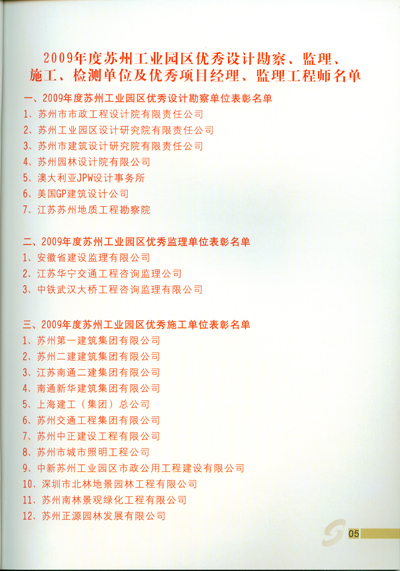 2009年度苏州工业园区优秀设计勘察、监理、
施工、检测单位及优秀项目经理、监理工程师名单
一、2009年度苏州工业园区优秀设计勘察单位表彰名单
1、苏州市市政工程设计院有限责任公司
2、苏州工业园区设计研究院有限责任公司
3、苏州市建筑设计研究院有限责任公司
4、苏州园林设计院有限公司
5、澳大利亚JPW设计事务所
6、美国GP建筑设计公司
7、江苏苏州地质工程勘察院
二、2009年度苏州工业园区优秀监理单位表彰名单
1、安徽省建设监理有限公司
2、江苏华宁交通工程咨询监理公司
3、中铁武汉大桥工程咨询监理有限公司
三、2009年度苏州工业园区优秀施工单位表彰名单
1、苏州第一建筑集团有限公司
2、苏州二建建筑集团有限公司
3、江苏南通二建集团有限公司
4、南通新华建筑集团有限公司
5、上海建工（集团）总公司
6、苏州交通工程集团有限公司
7、苏州中正建设工程有限公司
8、苏州市城市照明工程公司
9、中新苏州工业园区市政公用工程建设有限公司
10、深圳市北林地景园林工程有限公司
11、苏州南林景观绿化工程有限公司
12、苏州正源园林发展有限公司
05